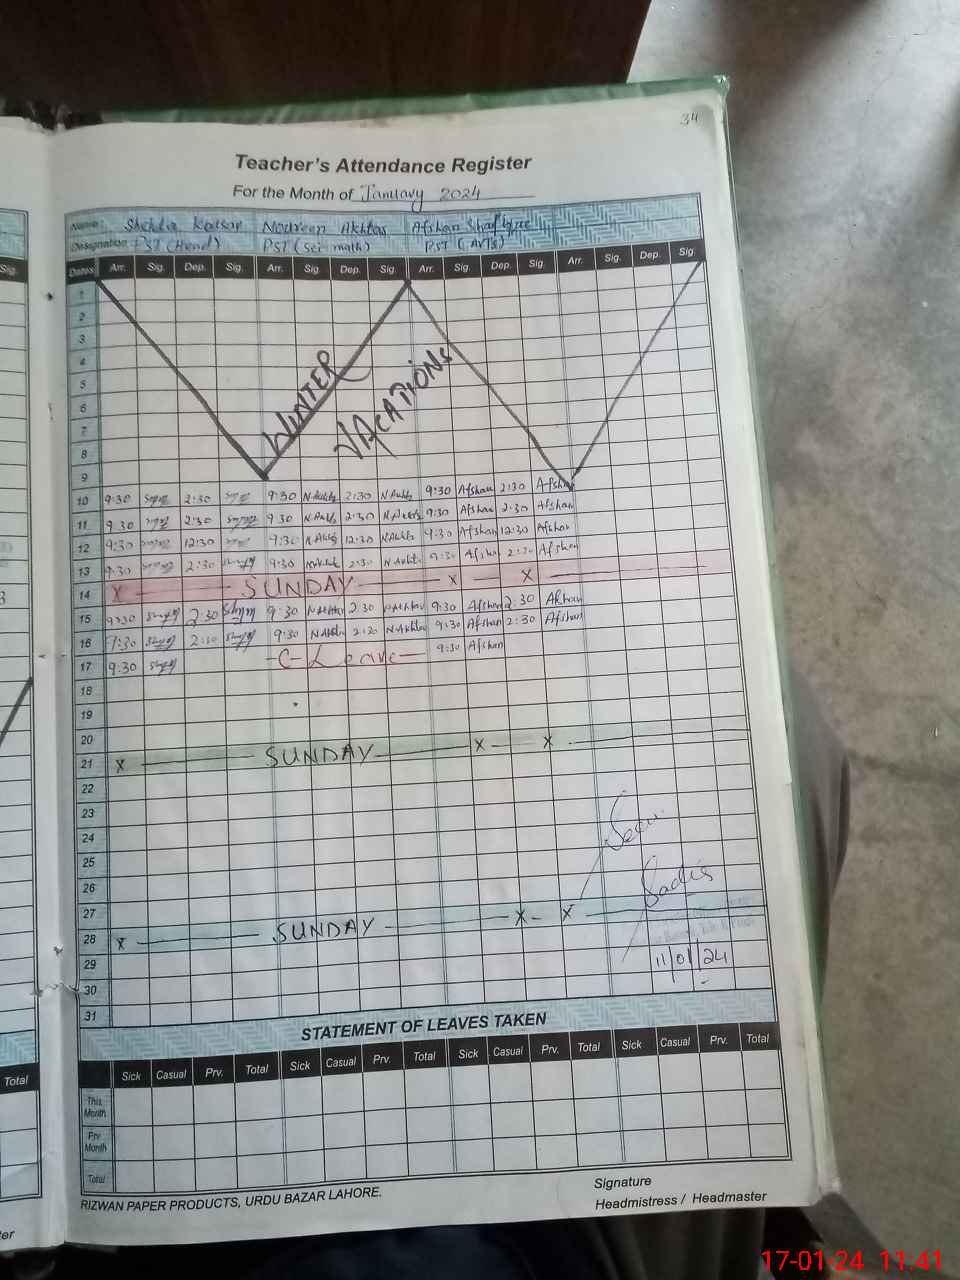 34
Teacher's Attendance Register
For the Month of January 2024
Name Shehla Kausar Noureen Akhtar Afshan
Designation PST (Head) PST (Sci math) PST (Arts)
Sig.
Dates Arr. Sig. Dep. Sig. Arr. Sig. Dep. Sig. Arr. Sig. Dep. Sig. Arr. Sig. Dep. Sig.
1
2
3
4
5
6
7
8
9
WINTER
VACATIONS
10 9:30 2:30 9:30 N.Akhtar 2:30 N.Akhtar 9:30 Afshan 2:30 Afshan
11 9:30 2:30 9:30 N.Akhtar 2:30 N.Akhtar 9:30 Afshan 2:30 Afshan
12 9:30 12:30 9:30 N.Akhtar 12:30 N.Akhtar 9:30 Afshan 12:30 Afshan
13 9:30 2:30 9:30 N.Akhtar 2:30 N.Akhtar 9:30 Afshan 2:30 Afshan
14 X SUNDAY X X
15 9:30 2:30 9:30 N.Akhtar 2:30 N.Akhtar 9:30 Afshan 2:30 Afshan
16 9:30 2:30 9:30 N.Akhtar 2:30 N.Akhtar 9:30 Afshan 2:30 Afshan
17 9:30 C-Leave 9:30 Afshan
18
19
20
21 X SUNDAY X X
22
23
24
25
26
27
28 X SUNDAY X X
Sadia
29
11/01/24
30
31
STATEMENT OF LEAVES TAKEN
Total
Sick Casual Prv. Total Sick Casual Prv. Total Sick Casual Prv. Total Sick Casual Prv. Total
This Month
Prv Month
Total
RIZWAN PAPER PRODUCTS, URDU BAZAR LAHORE.
Signature
Headmistress / Headmaster
17-01-24 11:41